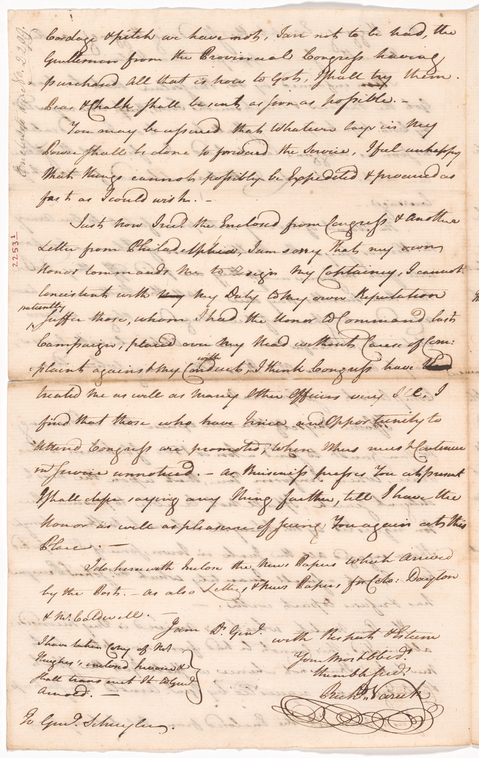 Cordage & pitch we have not, & are not to be had, the
Gentlemen from the Provincial Congress having
purchased all that is now to Got, I shall try them.
Pease & Chalk shall be sent as soon as possible. –
You may be assured that Whatever lays in My
Power shall be done to forward the Service, I feel unhappy
that things cannot possibly be Expedited & procured as
fast as I could wish. –
Just now I rec'd the Enclosed from Congress & Another
Letter from Philadelphia, I am sorry that my own
Honor Commands Me to resign My Captaincy, I cannot
consistent with My Duty & My own Reputation
patiently
suffer those, whom I had the Honor to Command last
Campaign, placed over My Head without Cause of Com-
plaint against My Conduct, I think Congress have
treated Me as well as many Other Officers very Ill, I
find that those who have Time and Opportunity to
Attend Congress are promoted, When Others must Continue
in Service unnoticed. – as Business presses You at present
I shall defer saying any thing farther, till I have the
Honor as well as pleasure of seeing You again at this
Place. –
I do herewith Inclose the News Papers which Arrived
by the Post. – as also Letters & News Papers for Colo: Dayton
& Mr Caldwell. –
I am Dr. Genl. with Respect & Esteem
Your Most Obedt
Humble Servt.
Richd. Varick
I have taken Copy of Mr
Hughes's inclosed &
shall transmit It to Genl
Arnold. –
To Genl. Schuyler.
22531